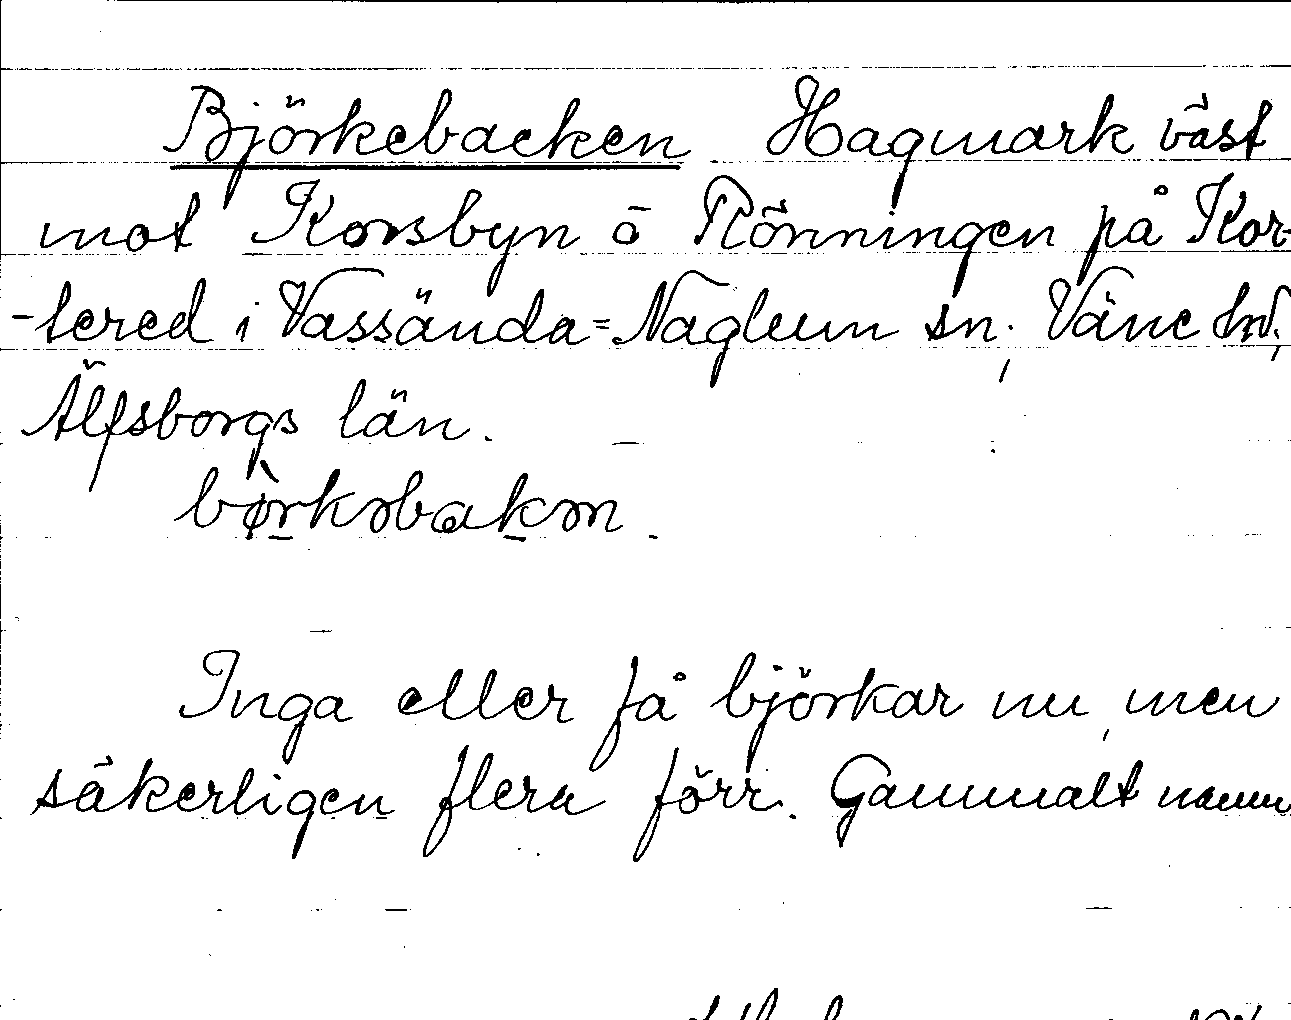 Björkebacken Hagmark väst
mot Korsbyn o Rönningen på Kor-
-tered i Vassända=Naglum sn, Väne hd,
Älfsborgs län.
Inga eller få björkar nu, men
säkerligen flera förr. Gammalt namn